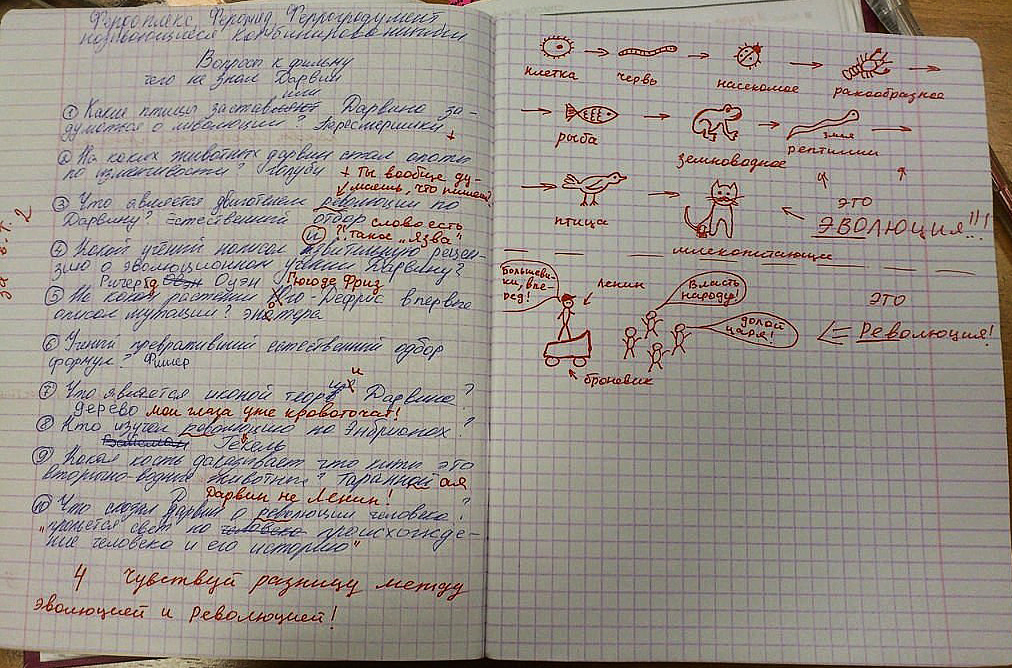 Вопросы к фильму
чего не знал Дарвин
или
① Какие птицы заставляют Дарвина за-
думаться о иволюции? Парестершики +
② На каких животных дарвин стал опыты
по изменчивости голуби + ты вообще ду-
маешь, что пишешь?
③ Что является двигателем революции по
Дарвину? Естественный отбор слово есть
такое "язва"
④ Какой учёный написал язвительную рецен-
зию о эволюционном учении Дарвину?
Ричерд Оуэн Гюгоде Фриз
⑤ На каком растении Юго-Дефрис впервые
описал мутации? энотера
⑥ Учёный превративший естественный отбор
формул? Фишер
⑦ Что является иконой теории Дарвина?
дерево мои глаза уже кровоточат!
⑧ Кто изучал революцию по Энбрионах?
Гекель
⑨ Какая кость даказывает что киты это
вторично-водные животные? Таранная
Дарвин не Ленин!
⑩ Что сказал дарвин о революции человека?
"прольется свет на человека происхожде-
ние человека и его историю"
4 Чувствуй разницу между
эволюцией и Революцией!
за в.т. 2
клетка червь насекомое ракообразнее
рыба земноводное змея рептилии
птица млекопитающие
это
ЭВОЛЮЦИЯ!!!
Большеви-
ки, впе-
ред!
ленин
Власть
народу!
долой
царя!
броневик
это
Революция!